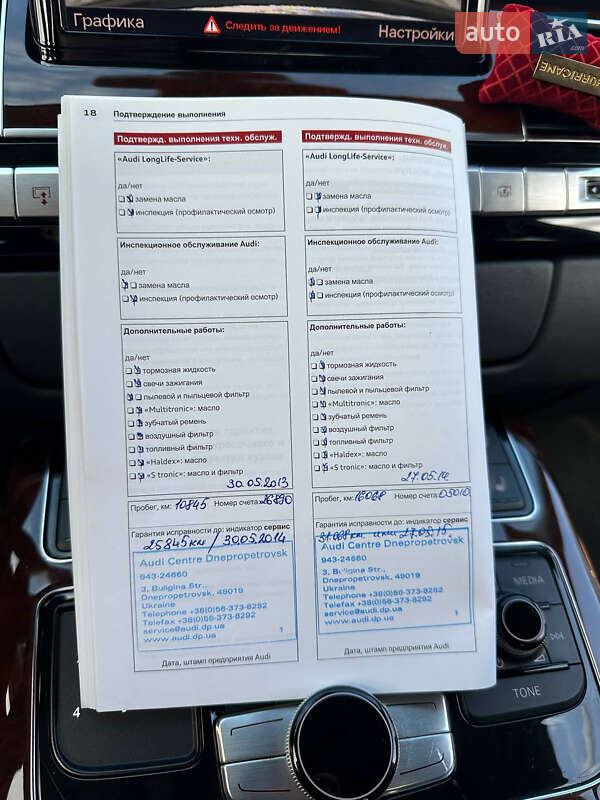 Графика
Следить за движением!
Настройки
auto RIA .com
HURRICANE
18 Подтверждение выполнения
Подтвержд. выполнения техн. обслуж.
«Audi LongLife-Service»:
да/нет
замена масла
инспекция (профилактический осмотр)
Инспекционное обслуживание Audi:
да/нет
замена масла
инспекция (профилактический осмотр)
Дополнительные работы:
да/нет
тормозная жидкость
свечи зажигания
пылевой и пыльцевой фильтр
«Multitronic»: масло
зубчатый ремень
воздушный фильтр
топливный фильтр
«Haldex»: масло
«S tronic»: масло и фильтр
30.05.2013
Пробег, км: 10845 Номер счета:
Гарантия исправности до: индикатор сервис
25845км / 30.05.2014
Audi Centre Dnepropetrovsk
943-24660
3, Buligina Str.,
Dnepropetrovsk, 49019
Ukraine
Telephone +38(0)56-373-8282
Telefax +38(0)56-373-8292
service@audi.dp.ua
www.audi.dp.ua
1
Дата, штамп предприятия Audi
Подтвержд. выполнения техн. обслуж.
«Audi LongLife-Service»:
да/нет
замена масла
инспекция (профилактический осмотр)
Инспекционное обслуживание Audi:
да/нет
замена масла
инспекция (профилактический осмотр)
Дополнительные работы:
да/нет
тормозная жидкость
свечи зажигания
пылевой и пыльцевой фильтр
«Multitronic»: масло
зубчатый ремень
воздушный фильтр
топливный фильтр
«Haldex»: масло
«S tronic»: масло и фильтр
27.05.14
Пробег, км: Номер счета:
Гарантия исправности до: индикатор сервис
27.05.15
Audi Centre Dnepropetrovsk
943-24660
3, Buligina Str.,
Dnepropetrovsk, 49019
Ukraine
Telephone +38(0)56-373-8282
Telefax +38(0)56-373-8292
service@audi.dp.ua
www.audi.dp.ua
1
Дата, штамп предприятия Audi
MEDIA
TONE
4